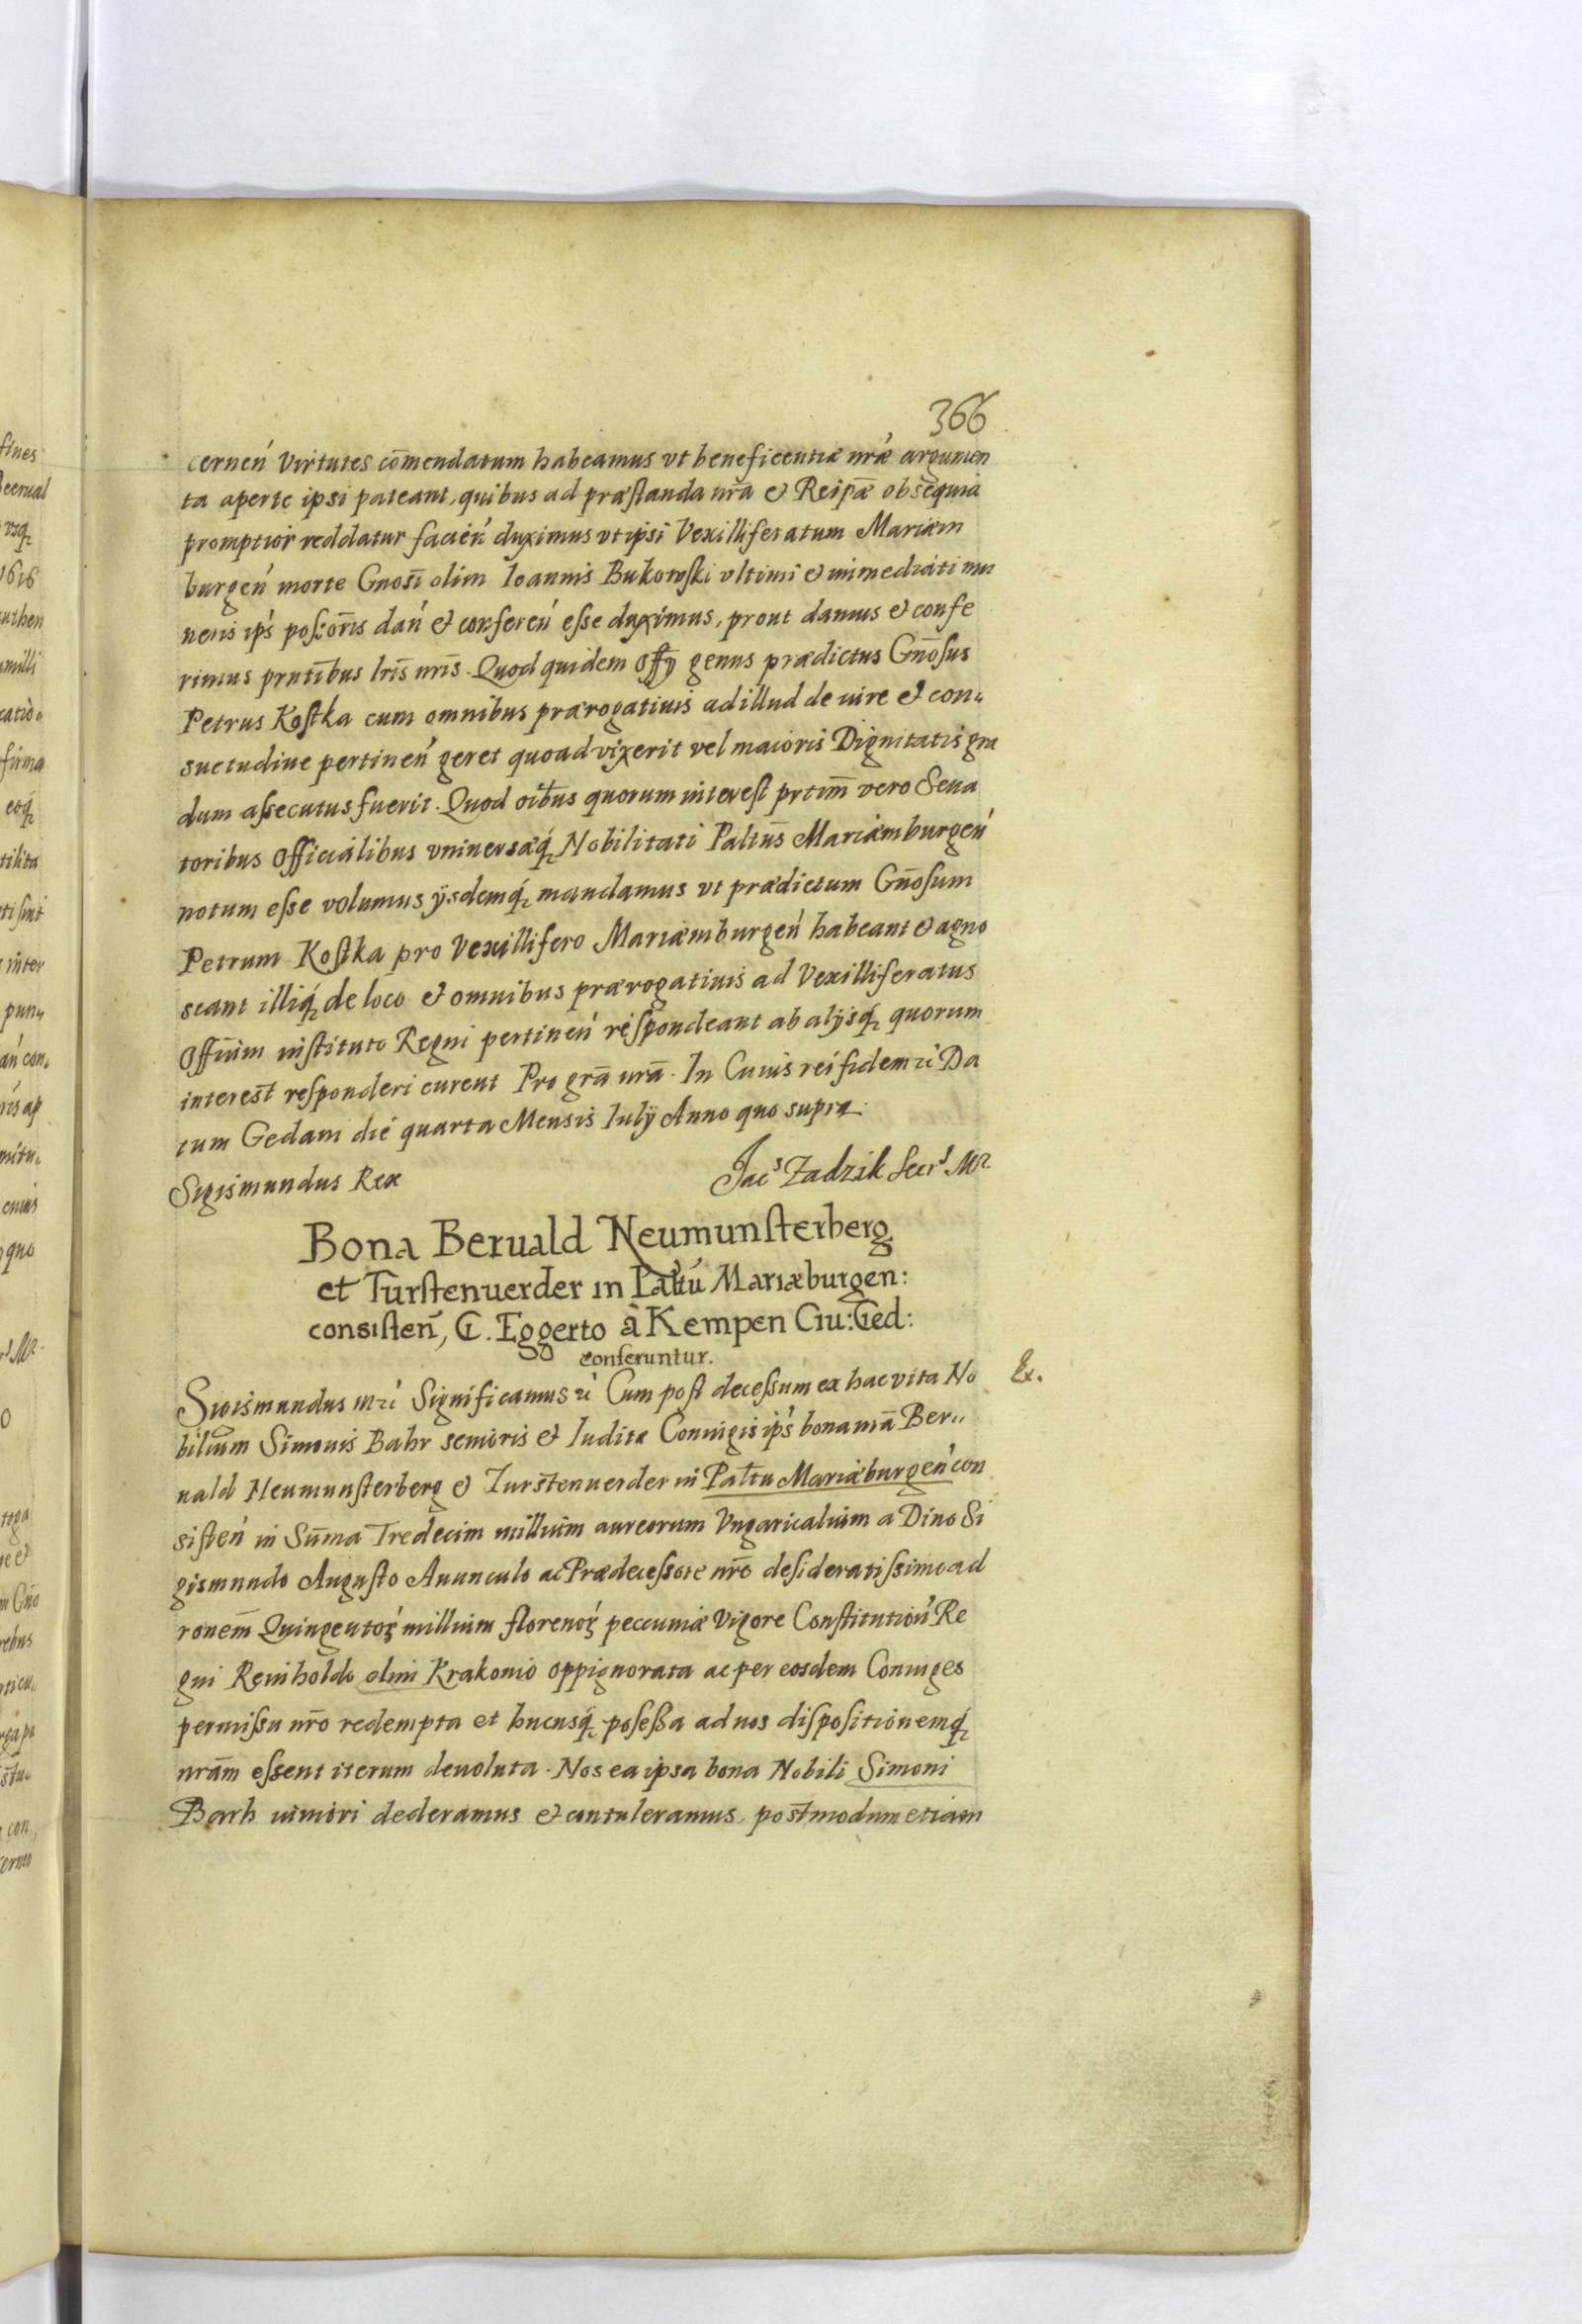 366
cerneń virtutes com̄endatum habeamus vt beneficentiæ nrǽ argumen
ta aperte ipsi pateant, quibus ad præstanda nrā & Reipǣ obsequia
promptior reddatur facień duximus vt ipsi Vexilliferatum Mariæm
burgeń morte Gnosī olim Ioannis Bukowski vltimi & immediati mu
neris ipś posšōris dań & confereń esse duximus, prout damus & confe
rimus prntībus lrīs nrīs. Quod quidem Offÿ genus prædictus Gnōsus
Petrus Kostka cum omnibus prærogatiuis ad illud de iure & con„
suetudine pertineń geret quoad vixerit vel maioris Dignitatis gra
dum assecutus fuerit. Quod oībus quorum interest prtim̄ vero Sena
toribus Officialibus vniuersæq́ Nobilitati Paltūs Mariæmburgeń
notum esse volumus ÿsdemq́ mandamus vt prædictum Gnōsum
Petrum Kostka pro Vexillifero Mariæmburgeń habeant & agno
scant illiq́ de loco & omnibus prærogatiuis ad Vexilliferatus
Offiūm instituto Regni pertineń respondeant ab alÿsq́ quorum
interest responderi curent Pro grā nrā. In Cuius rei fidem ꝛć Da
tum Gedani die quarta Mensis Iulÿ Anno quo supra.
Sigismundus Rex
Jacs Zadzik Secrs MR.
Bona Beruald Neumunsterberg
et Furstenuerder in Paltú Mariæburgen:
consisten̄, G. Eggerto à Kempen Ciu: Ged:
conferuntur.
Ex.
Sigismundus III ꝛć Significamus ꝛć Cum post decessum ex hac vita No
bilium Simonis Bahr senioris & Iuditæ Coniugis ipś bona nrā Ber„
uald Neumunsterberg & Furstenuerder in Paltū Mariæburgeń con
sisteń in Sum̄a Tredecim millium aureorum Vngaricalium a Diuo Si
gismundo Augusto Auunculo ac Prædecessore nrō desideratissimo ad
ronem̄ Quingentoꝝ́ millium florenoꝝ́ peccuniæ Vigore Constitutiou̇ Re
gni Reinholdo olim Krakonio oppignorata ac per eosdem Coniuges
permissu nrō redempta et hucusq́ posessa ad nos dispositionemq́
nrām essent iterum deuoluta. Nos ea ipsa bona Nobili Simoni
Barh iuniori dederamus & contuleramus postmodum etiam